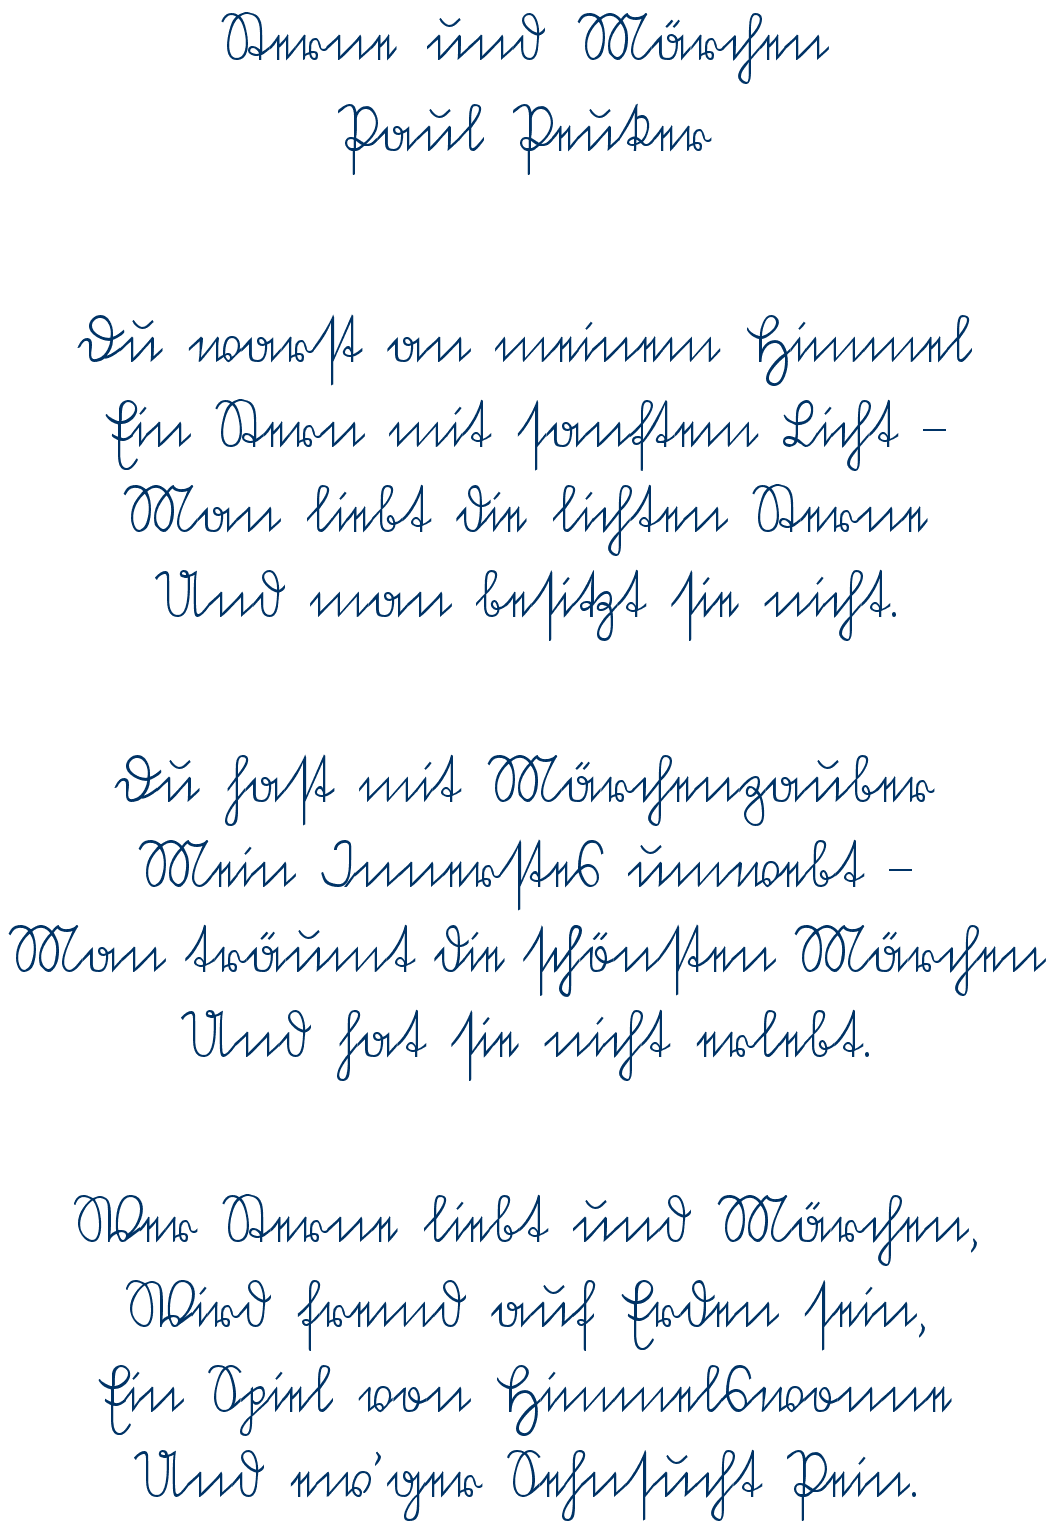 Sterne und Märchen
Paul Peuker
Du warst an meinem Himmel
Ein Stern mit sanftem Licht –
Man liebt die lichten Sterne
Und man besitzt sie nicht.
Du hast mit Märchenzauber
Mein Innerstes umwebt –
Man träumt die schönsten Märchen
Und hat sie nicht erlebt.
Wer Sterne liebt und Märchen,
Wird fremd auf Erden sein,
Ein Spiel von Himmelswonne
Und ew'ger Sehnsucht Pein.